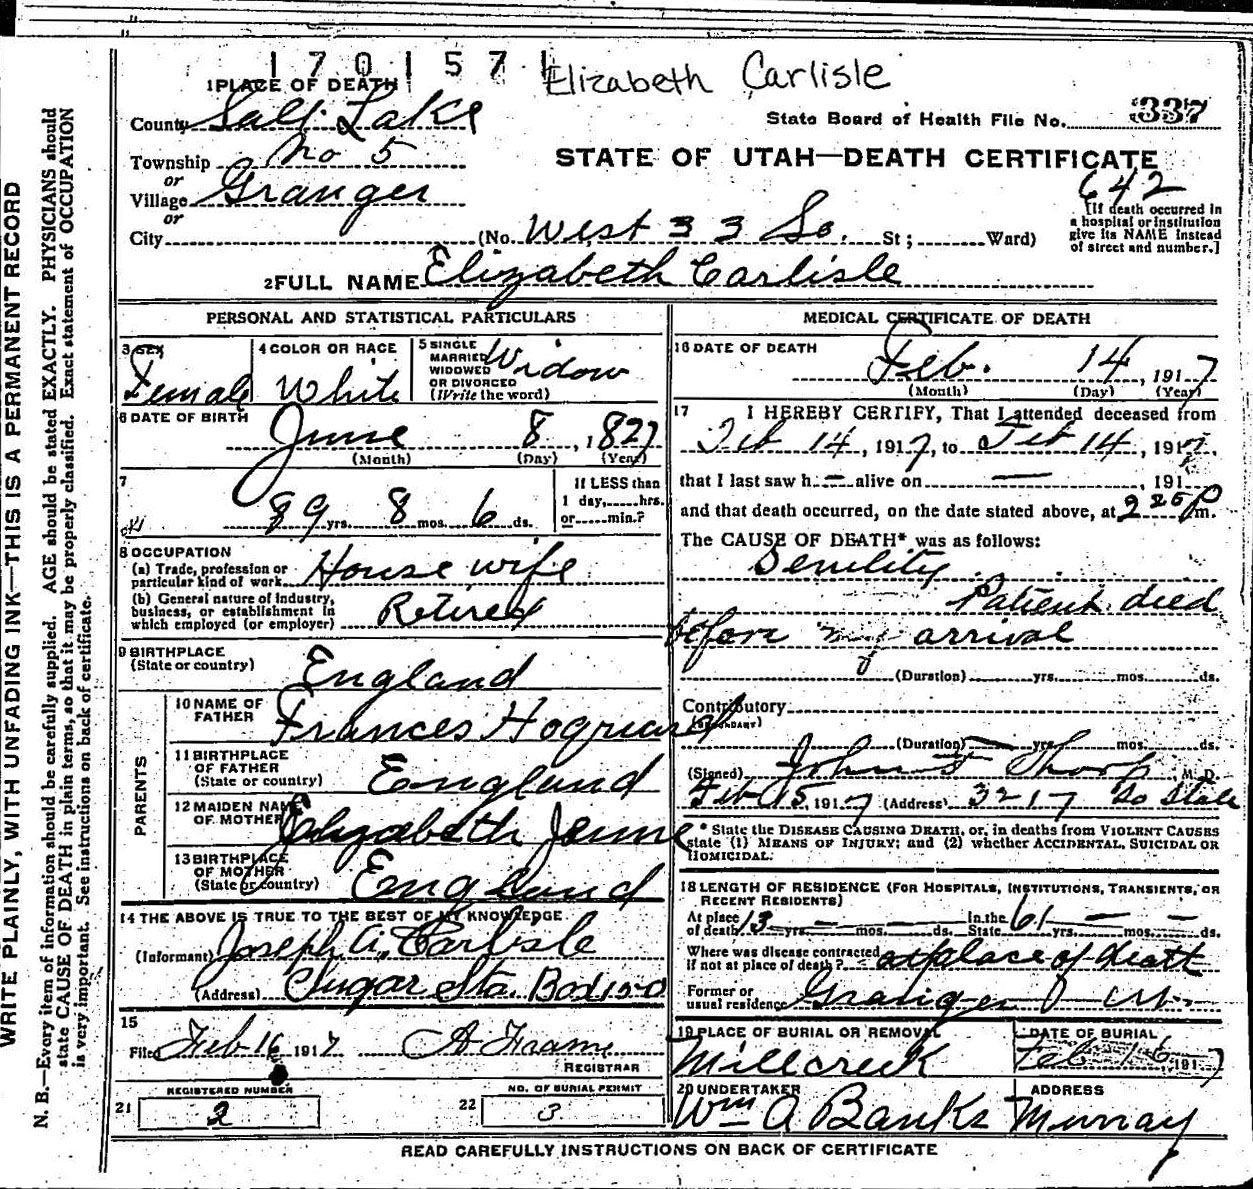 1701571 Elizabeth Carlisle
1 PLACE OF DEATH
County Salt Lake
State Board of Health File No. 337
Township No 5
STATE OF UTAH—DEATH CERTIFICATE
or
Village Granger
642
or
City (No. West 33 So. St; Ward)
[If death occurred in
a hospital or institution
give its NAME instead
of street and number.]
2 FULL NAME Elizabeth Carlisle
PERSONAL AND STATISTICAL PARTICULARS
3 SEX
Female
4 COLOR OR RACE
White
5 SINGLE
MARRIED
WIDOWED
OR DIVORCED
(Write the word)
Widow
6 DATE OF BIRTH
June 8, 1827
(Month) (Day) (Year)
7
89 yrs. 8 mos. 6 ds.
If LESS than
1 day, hrs.
or min.?
8 OCCUPATION
(a) Trade, profession or
particular kind of work House wife
(b) General nature of industry,
business, or establishment in
which employed (or employer) Retired
9 BIRTHPLACE
(State or country) England
PARENTS
10 NAME OF
FATHER Frances
11 BIRTHPLACE
OF FATHER
(State or country) England
12 MAIDEN NAME
OF MOTHER Elizabeth
13 BIRTHPLACE
OF MOTHER
(State or country) England
14 THE ABOVE IS TRUE TO THE BEST OF MY KNOWLEDGE
(Informant) Joseph A. Carlisle
(Address) Sugar Sta. Box 150
15
Filed Feb 16 1917 A Frame
REGISTRAR
REGISTERED NUMBER
21 2
NO. OF BURIAL PERMIT
22 3
MEDICAL CERTIFICATE OF DEATH
16 DATE OF DEATH
Feb. 14, 1917
(Month) (Day) (Year)
17 I HEREBY CERTIFY, That I attended deceased from
Feb 14, 1917, to Feb 14, 1917,
that I last saw h — alive on —, 191
and that death occurred, on the date stated above, at 2 25 P m.
The CAUSE OF DEATH* was as follows:
Senility
Patient died
before my arrival
(Duration) yrs. mos. ds.
Contributory
(SECONDARY)
(Duration) — yrs. mos. ds.
(Signed) John F Thorp, M.D.
Feb 15, 1917 (Address) 3217 So State
* State the DISEASE CAUSING DEATH, or, in deaths from VIOLENT CAUSES
state (1) MEANS OF INJURY; and (2) whether ACCIDENTAL, SUICIDAL OR
HOMICIDAL.
18 LENGTH OF RESIDENCE (FOR HOSPITALS, INSTITUTIONS, TRANSIENTS, OR
RECENT RESIDENTS)
At place of death 13 yrs. — mos. — ds. In the State 61 yrs. — mos. — ds.
Where was disease contracted
if not at place of death? at place of death
Former or
usual residence Granger
19 PLACE OF BURIAL OR REMOVAL
Millcreek
DATE OF BURIAL
Feb 16, 1917
20 UNDERTAKER
Wm A Banks
ADDRESS
Murray
READ CAREFULLY INSTRUCTIONS ON BACK OF CERTIFICATE
WRITE PLAINLY, WITH UNFADING INK—THIS IS A PERMANENT RECORD
N. B.—Every item of information should be carefully supplied. AGE should be stated EXACTLY. PHYSICIANS should
state CAUSE OF DEATH in plain terms, so that it may be properly classified. Exact statement of OCCUPATION
is very important. See instructions on back of certificate.